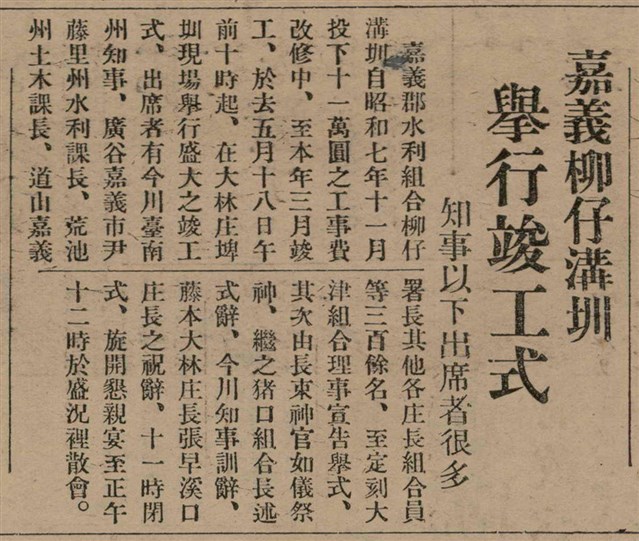 嘉義柳仔溝圳
舉行竣工式
知事以下出席者很多
嘉義郡水利組合柳仔
溝圳自昭和七年十一月
投下十一萬圓之工事費
改修中、至本年三月竣
工、於去五月十八日午
前十時起、在大林庄埤
圳現場舉行盛大之竣工
式、出席者有今川臺南
州知事、廣谷嘉義市尹
藤里州水利課長、荒池
州土木課長、道山嘉義
署長其他各庄長組合員
等三百餘名、至定刻大
津組合理事宣告舉式、
其次由長東神官如儀祭
神、繼之猪口組合長述
式辭、今川知事訓辭、
藤本大林庄長張早溪口
庄長之祝辭、十一時閉
式、旋開懇親宴至正午
十二時於盛況裡散會。